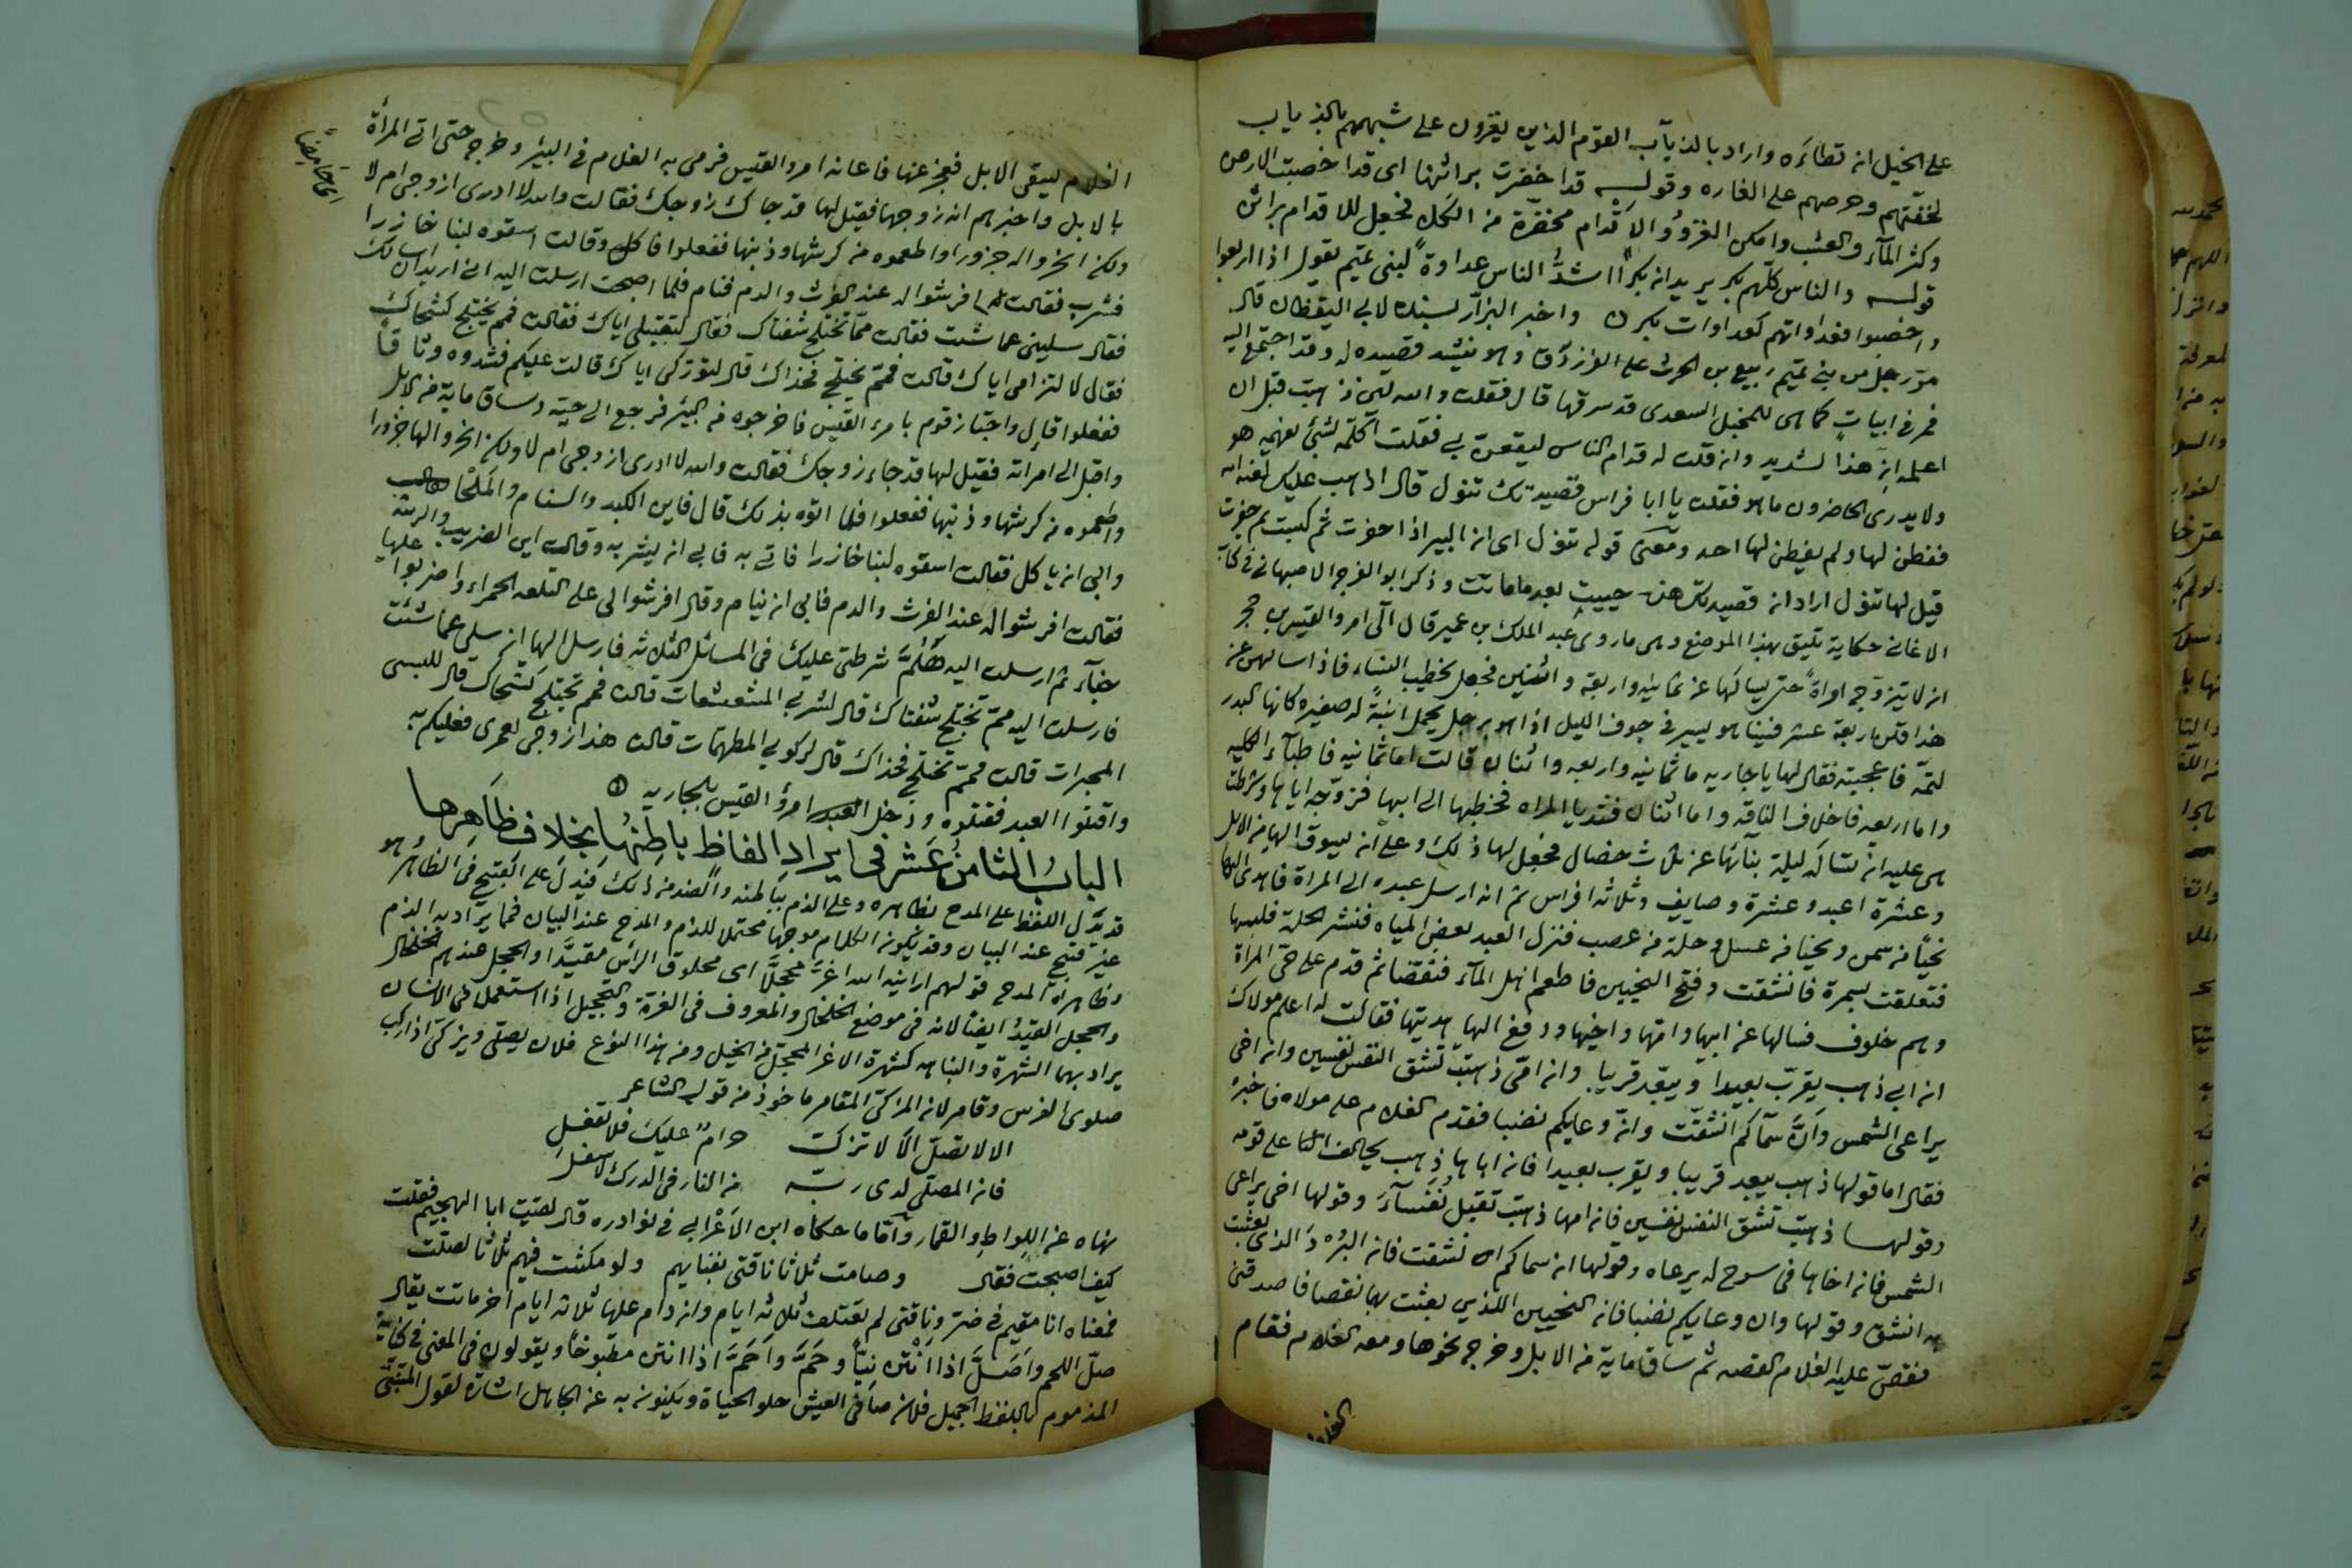 على الخيل ان تطاءَه واراد بالذيآب القوم الذين يغزون على شبههم بالذياب
لخفتهم وحرصهم على الغاره وقولـه قد اخضرت براثنها اى قد اخصبت الارض
وكثر المآء والعشب وامكن الغزو والاقدام مخضرّة من الكلا فجعل للاقدام براثن
قولـه والناس كلهم بكر يريد ان بكرا اشدّ الناس عداوةً لبنى تميم يقول اذا اربعوا
واخصبوا فعداواتهم كعداوات بكر واخبر البزاز بسنده لابى اليقظان قال
مرّ رجل من بنى تميم ربيع بن الحرث على الفرزدق وهو ينشد قصيده له وقد اجتمع اليه
فمر فى ابياتٍ كما هى للمخبل السعدى قد سرقها قال فقلت والله لئن ذهبت قبل ان
اعلمه ان هذا لشديد وان قلت له قدام الناس ليقعن بى فقلت اكلمه بشئ يفهمه هو
ولا يدرى الحاضرون ما هو فقلت يا ابا فراس قصيدتك تنول قال اذهب عليك لعنه الله
ففطن لها ولم يفطن لها احد ومعنى قوله تنول اى ان البير اذا حفرت ثم كبست ثم حفرت
قيل لها تنول اراد ان قصيدتك هذه حييت بعد ما ماتت وذكر ابو الفرج الاصبهانى فى كتاب
الاغانى حكاية تليق بهذا الموضع وهى ما روى عبد الملك بن عمير قال آلى امرو القيس بن حجر
ان لا يتزوج امراةً حتى يسالها عن ثمانية واربعة واثنتين فجعل يخطب النساء فاذا سالهن عن
هذا قلن اربعة عشر فبينا هو يسير فى جوف الليل اذا هو برجل يحمل ابنةً له صغيره كانها البدر
لتمّه فاعجبته فقال لها يا جاريه ما ثمانيه واربعه واثنان قالت اما ثمانيه فاطبآء الكلبه
واما اربعه فاخلاف الناقه واما اثنان فثديا المراه فخطبها الى ابيها فزوّجه اياها وشرطت
هى عليه ان تساله ليلة بنائها عن ثلاث خصال فجعل لها ذلك وعلى ان يسوق اليها من الابل
وعشرة اعبد وعشرة وصايف وثلاثه افراس ثم انه ارسل عبده الى المراة فاهدى اليها
نحيًا من سمن ونحيا من عسل وحلّة من عصب فنزل العبد بعض المياه فنشر الحلة فلبسها
فتعلقت بسمرة فانشقت وفتح النحيين فاطعم اهل المآء فنقصا ثم قدم على حى المراة
وهم خلوف فسالها عن ابيها وامّها واخيها ودفع اليها هديتها فقالت له اعلم مولاك
ان ابى ذهب يقرّب بعيدا ويبعّد قريبا وان امّى ذهبت تشق النفس نفسين وان اخى
يراعى الشمس وانّ سمآكم انشقت وانّ وعايكم نضبا فقدم الغلام على مولاه فاخبره
فقال اما قولها ذهب يبعد قريبا ويقرب بعيدا فان اباها ذهب يحالف الناس على قومه
وقولهـا ذهبت تشق النفس نفسين فان امها ذهبت تقبل نُفَسآءَ وقولها اخى يراعى
الشمس فان اخاها فى سرح له يرعاه وقولها ان سماكم انشقت فان البُرد الذى بعثت
به انشق وقولها وان وعايكم نضبا فان النحيين اللذين بعثت بهما نقصا فاصدقنى
فقصّ عليه الغلام القصه ثم ساق ماية من الابل وخرج نحوها ومعه الغلام فقام
الغلام
الغلام ليسقى الابل فعجز عنها فاعانه امرو القيس فرمى به الغلام فى البير وخرج حتى اتى المراة
بالابل واخبرهم انه زوجها فقيل لها قد جاك زوجك فقالت والله لا ادرى ازوجى ام لا
ولكن انحروا له جزورا واطعموه من كرشها وذنبها ففعلوا فاكل وقالت اسقوه لبنا خازرا
اى حامضًا
فشرب فقالت افرشوا له عند الفرث والدم فنام فلما اصبحت ارسلت اليه انى اريد ان اسالك
فقال سلينى عما شئت فقالت ممّا تختلج شفتاك فقال لتقبيلى اياك فقالت فمم يختلج كشحاك
فقال لالتزامى اياك قالت فممّ يختلج فخذاك قال لتورّكى اياك قالت عليكم فشدوه وثاقاً
ففعلوا قال واجتاز قوم بامرء القيس فاخرجوه من البئر فرجع الى حيّه وساق ماية من الابل
واقبل الى امراته فقيل لها قد جاء زوجك فقالت والله لا ادرى ازوجى ام لا ولكن انحروا لها جزورا
واطعموه من كرشها وذنبها ففعلوا فلما اتوه بذلك قال فاين الكبد والسنام والملحا
وابى ان ياكل فقالت اسقوه لبنا خازرا فاتى به فابى ان يشربه وقال اين الضريب والرثة
فقالت افرشوا له عند الفرث والدم فابى ان ينام وقال افرشوا لى على التلعه الحمراء واضربوا عليها
خبآء ثم ارسلت اليه هَلُمَّ شرطتى عليك فى المسائل الثلاثه فارسل اليها ان سلى عما شئت
فارسلت اليه ممّ تختلج شفتاك قال لشربى المشعشعات قالت فمم تختلج كشحاك قال للبسى
المحبرات قالت فممّ تختلج فخذاك قال لركوبى المطهمات قالت هذا زوجى لعمرى فعليكم به
واقتلوا العبد فقتلوه ودخل امرؤ القيس بالجاريه
البابُ الثامنُ عَشر فى ايراد الفاظ باطنُها بخلاف ظاهرها
قد يَدُلّ اللفظ على المدح بظاهره وعلى الذم بباطنه والضد من ذلك فيدل على القبيح فى الظاهر وهو
غير قبيح عند البيان وقد يكون الكلام موجها محتملا للذم والمدح عند البيان فما يراد به الذم
وظاهره المدح قولهم ارانيه الله اغرّ محجلًا اى محلوق الراس مقيّدا والحجل عندهم الخلخال
والحجل القيدُ ايضًا لانه فى موضع الخلخال والمعروف فى الغرّة والتحجيل اذا استعمل فى الانسان
يراد بهما الشهرة والنباهه كشهرة الاغر المحجل من الخيل ومن هذا النوع فلان يصلّى ويزكّى اذا ركب
صلوى الفرس وقامر لان المزكّى المقامر ماخوذ من قول الشاعر
الا لا تصلّ الا لا تزكّ حرامٌ عليك فلا تفعل
فان المصلّى لدى ربّه من النار فى الدرك الاسفل
نهاه عن اللواط والقمار وأمّا ما حكاه ابن الاعْرابى فى نوادره قال لقيت ابا الهجيم فقلت
كيف اصبحت فقال وصامت ثلاثا ناقتى بفنايهم ولو مكثت فيهم ثلاثا لصلّت
فمعناه انا مقيم فى ضرّ وناقتى لم تعتلف ثلاثه ايام وان دام عليها ثلاثه ايام اخر ماتت يقال
صلّ اللحم واَصَلَّ اذا انتن نيّاً وخَمَّ واَخَمَّ اذا انتن مطبوخًا ويقولون فى المعنى فى كناية
المذموم باللفظ الجميل فلان صافى العيش حلو الحياة ويكنون به عن الجاهل اشارة لقول المتنبّى